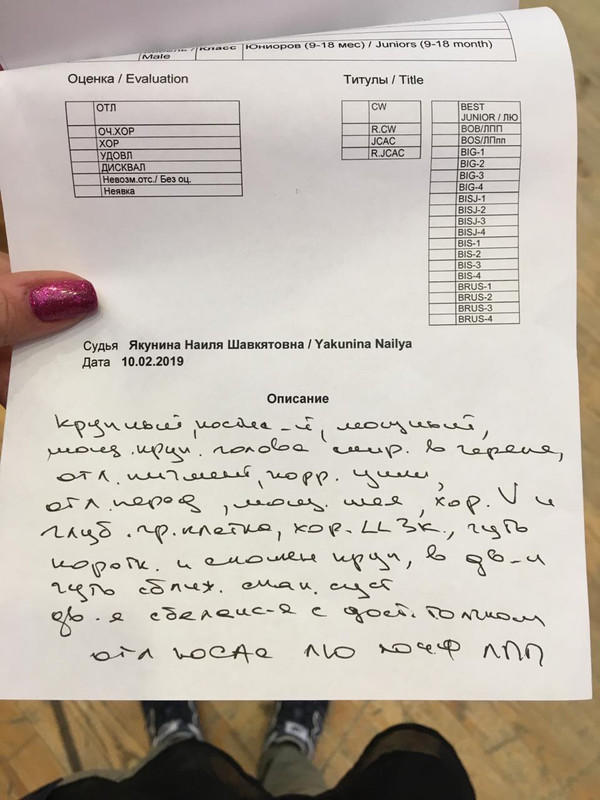 Male Класс Юниоров (9-18 мес) / Juniors (9-18 month)
Оценка / Evaluation
Титулы / Title
ОТЛ
ОЧ.ХОР
ХОР
УДОВЛ
ДИСКВАЛ
Невозм.отс./ Без оц.
Неявка
CW
R.CW
JCAC
R.JCAC
BEST
JUNIOR / ЛЮ
BOB/ЛПП
BOS/ЛПпп
BIG-1
BIG-2
BIG-3
BIG-4
BISJ-1
BISJ-2
BISJ-3
BISJ-4
BIS-1
BIS-2
BIS-3
BIS-4
BRUS-1
BRUS-2
BRUS-3
BRUS-4
Судья Якунина Наиля Шавкятовна / Yakunina Nailya
Дата 10.02.2019
Описание
крупный, костн-й, мощный,
мощ. круп. голова шир. в черепе,
отл. пигмент, корр. уши,
отл. перед, мощ. шея, хор. V и
глуб. гр. клетка, хор. ЛЛЗК., чуть
коротк. и скошен круп, в дв-и
чуть сближ. скак. суст
дв-я сбаланс-я с дост. толчком
отл ЛЮ ЛПП